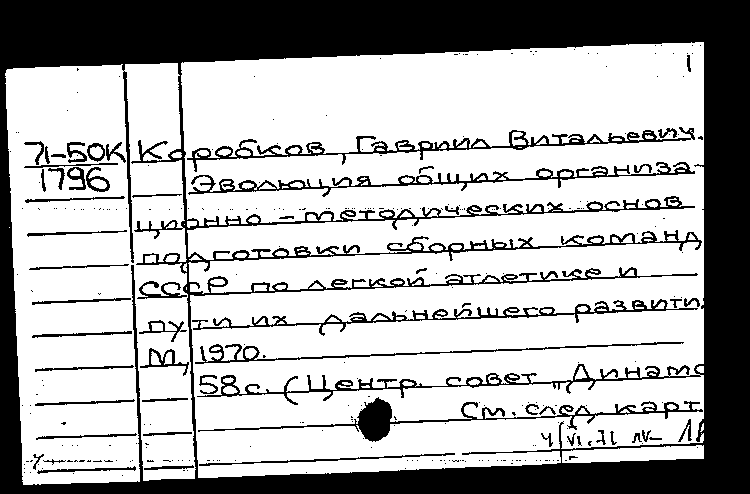 1
71-50К Коробков, Гавриил Витальевич.
1796 Эволюция общих организа-
ционно-методических основ
подготовки сборных команд
СССР по легкой атлетике и
пути их дальнейшего развити
М, 1970.
58 с. (Центр. совет „Динамо
См. след. карт.
4/VI.71